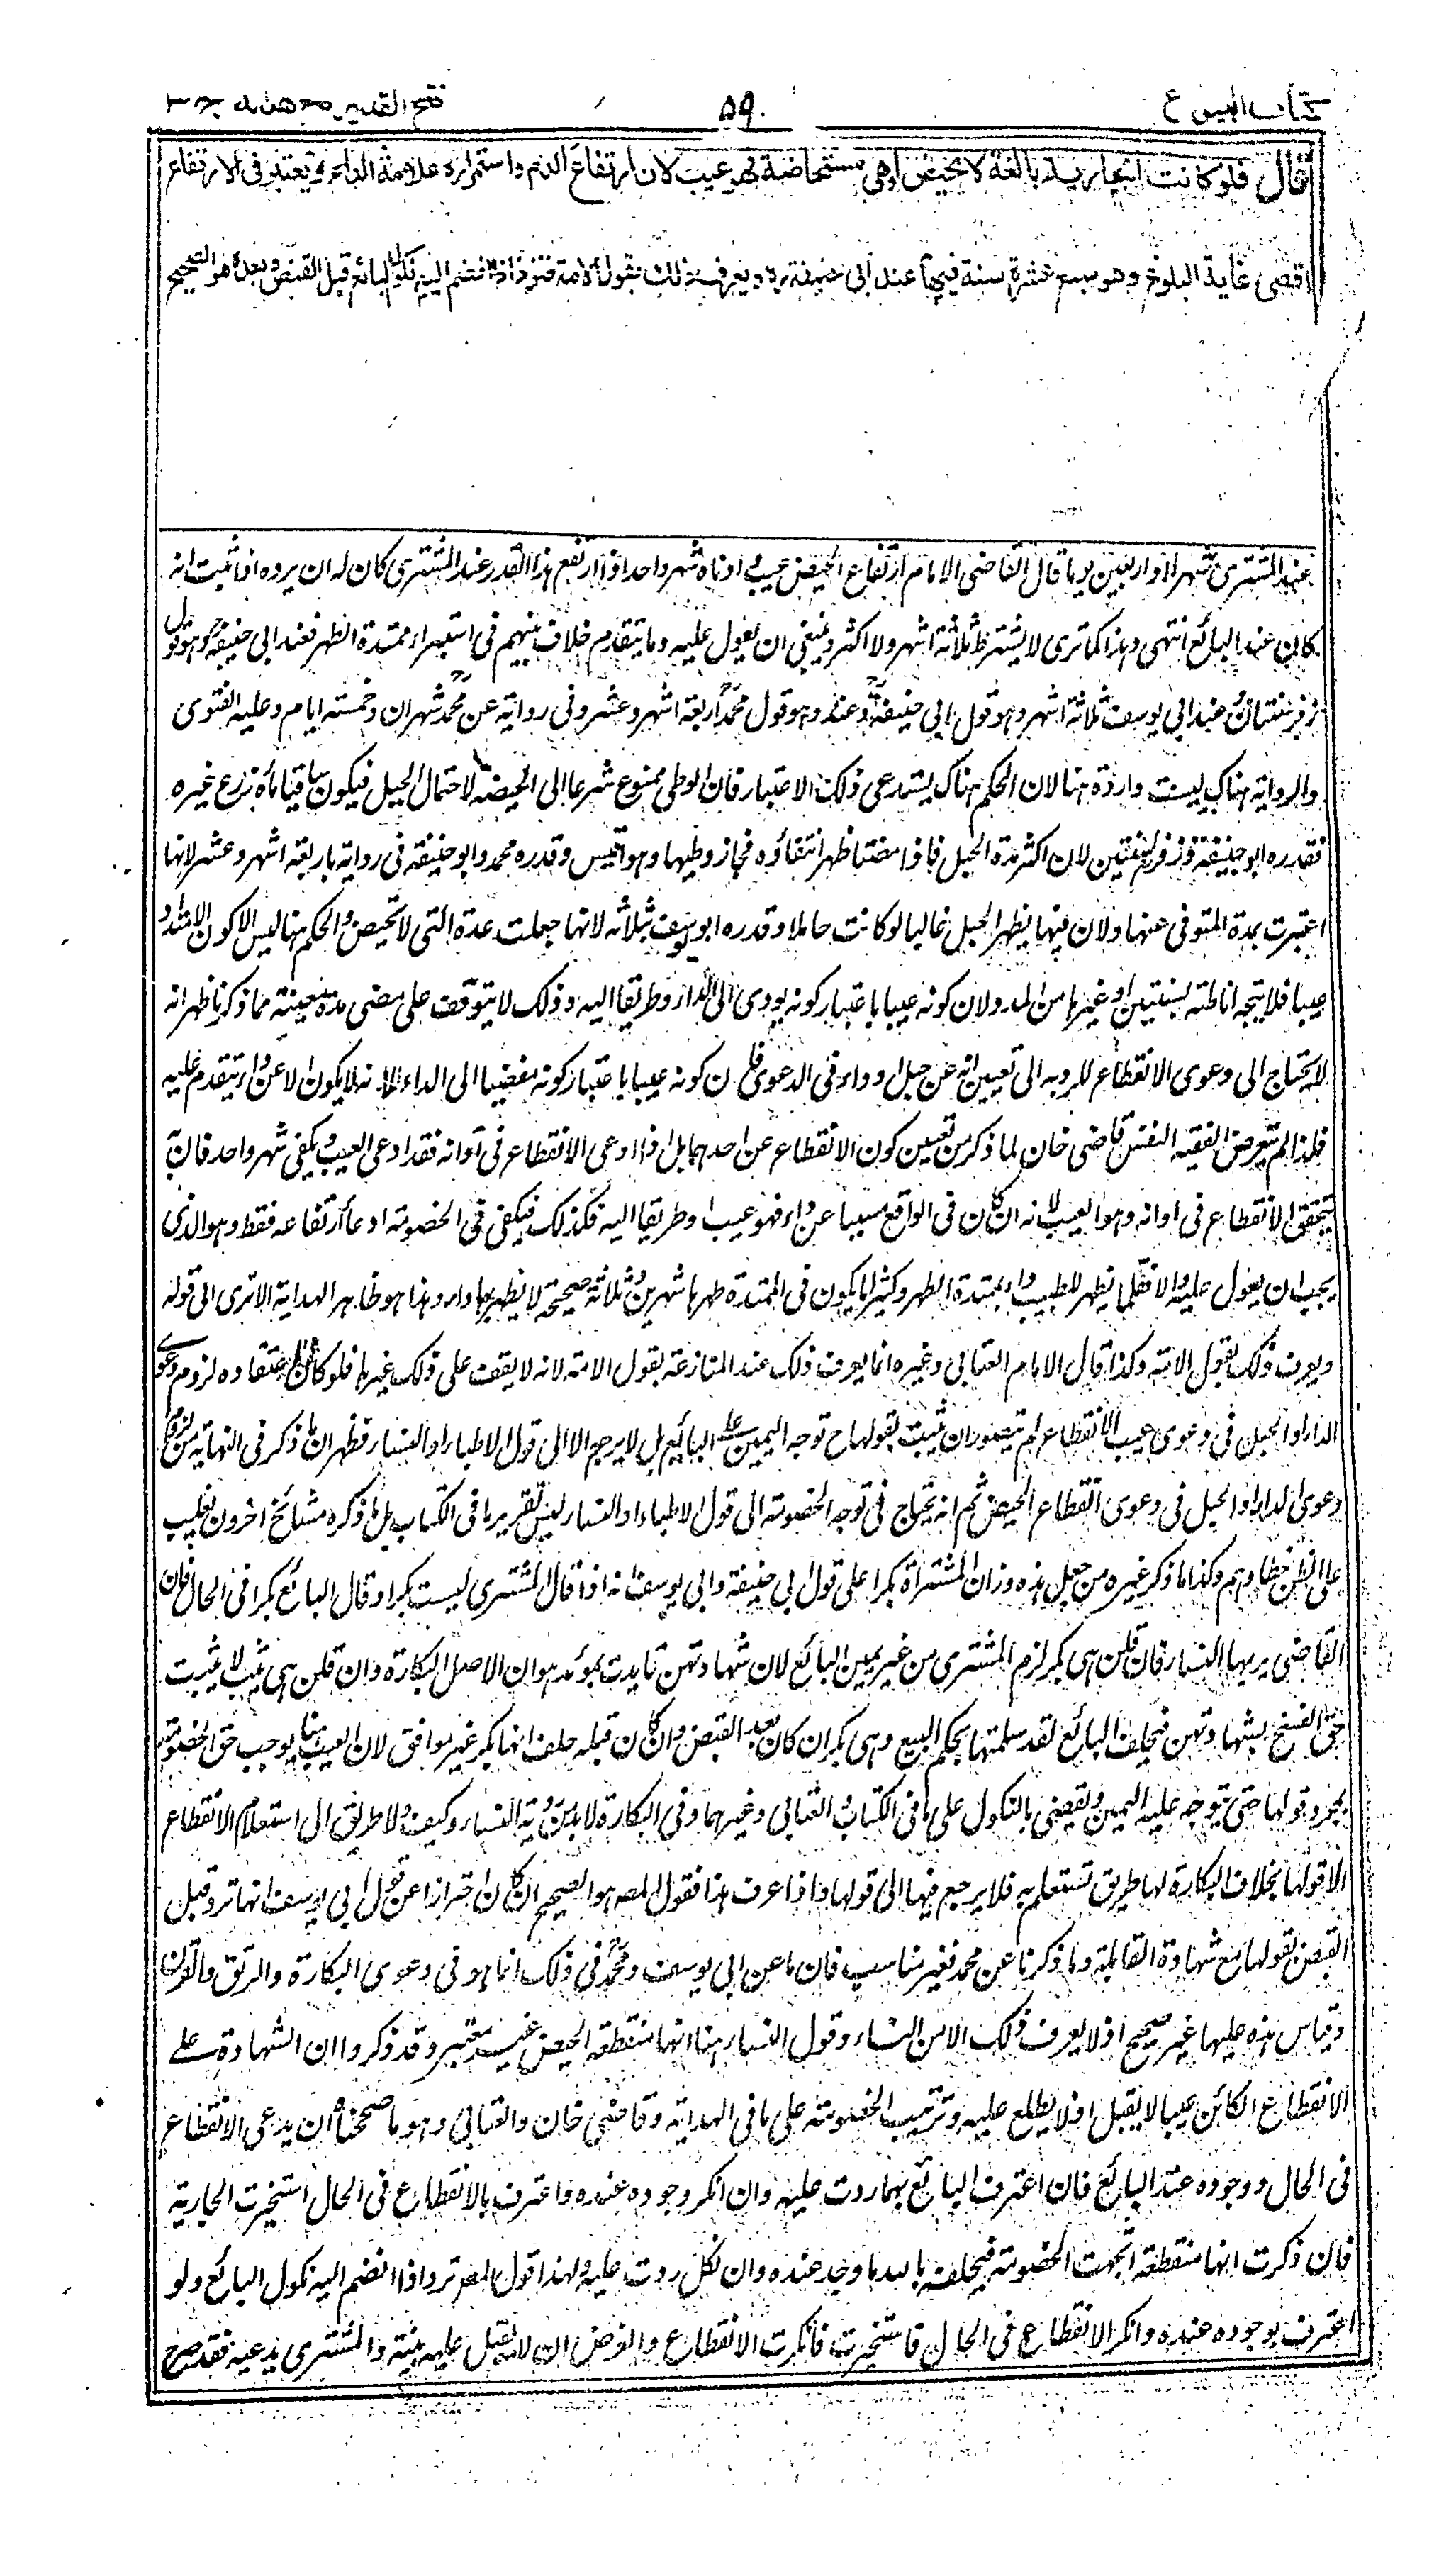 كتاب البيوع
۵۹
فتح القدير مع هدايه ج ٣
قال فلو كانت الجارية بالغة لا تحيض او هي مستحاضة فهو عيب لان ارتفاع الدم واستمراره علامة الداء ويعتبر في الارتفاع
اقصى غاية البلوغ وهو سبع عشرة سنة فيها عند ابي حنيفة ره ويعرف ذلك بقول الامة فترد اذا انضم اليه نكول البائع قبل القبض وبعده هو الصحيح
عند المشترى شهرا او اربعين يوما قال القاضى الامام ارتفاع الحيض عيب وادناه شهر واحد اذا ارتفع هذا القدر عند المشترى كان له ان يرده اذا ثبت انه
كان عند البائع انتهى وهذا كما ترى لا يشترط ثلاثة اشهر ولا اكثر وينبغى ان يعول عليه وما يتقدم خلاف بينهم فى استبراء ممتدة الطهر فعند ابى حنيفة وهو قول
زفر سنتان وعند ابى يوسف ثلاثة اشهر وهو قول ابى حنيفة وعنه وهو قول محمد اربعة اشهر وعشر وفى رواية عن محمد شهران وخمسة ايام وعليه الفتوى
والرواية هناك ليست واردة هنا لان الحكم هناك يستدعى ذلك الاعتبار فان الوطى ممنوع شرعا الى الحيضة لاحتمال الحبل فيكون ساقيا ماءه زرع غيره
فقدره ابو حنيفة وزفر بسنتين لان اكثر مدة الحبل فاذا مضتا ظهر انتفاؤه فجاز وطيها وهو اقيس وقدره محمد وابو حنيفة فى رواية باربعة اشهر وعشر لانها
اعتبرت بمدة المتوفى عنها ولان فيها يظهر الحبل غالبا لو كانت حاملا وقدره ابو يوسف بثلاثة لانها جعلت عدة التى لا تحيض والحكم هنا ليس الا كون الامتداد
عيبا فلا يتجه اناطته بسنتين او غيرها من المدد ولان كونه عيبا باعتبار كونه يودى الى الداء وطريقا اليه وذلك لا يتوقف على مضى مدة معينة مما ذكرنا ظهر انه
لا يحتاج الى دعوى الانقطاع للرد به الى تعيين انه عن حبل او داء فى الدعوى فلان كونه عيبا باعتبار كونه مفضيا الى الداء لا انه لا يكون الا عن داء يتقدم عليه
فلذا لم يتعرض الفقيه النفس قاضى خان لما ذكر من تعيين كون الانقطاع عن احدهما بل اذا ادعى الانقطاع فى آوانه فقد ادعى العيب ويكفى شهر واحد فان به
يتحقق الانقطاع فى اوانه وهو العيب لانه ان كان فى الواقع مسببا عن داء فهو عيب او طريقا اليه فكذلك فيكفى فى الخصومة ادعاء ارتفاعه فقط وهو الذى
يجب ان يعول عليه والا فقلما يظهر للطبيب داء بممتدة الطهر وكثيرا ما يكون فى الممتدة طهرها شهرين وثلاثة صحيحة لا يظهر بها داء وهذا هو ظاهر الهداية الا ترى الى قوله
ويعرف ذلك بقول الامة وكذا قال الامام العتابى وغيره انما يعرف ذلك عند المنازعة بقول الامة لانه لا يقف على ذلك غيرها فلو كان اعتقاده لزوم دعوى
الداء او الحبل فى دعوى عيب الانقطاع لم يتصور ان يثبت بقولها ح توجه اليمين على البائع بل لا يرجع الا الى قول الاطباء او النساء فظهر ان ما ذكر فى النهاية من لزوم
دعوى الداء او الحبل فى دعوى انقطاع الحيض ثم انه يحتاج فى توجه الخصومة الى قول الاطباء او النساء ليس تقرير ما فى الكتاب بل ما ذكره مشائخ اخرون يغلب
على الظن خطاوهم وكذا ما ذكر غيره من جعل هذه وزان المشتراة بكرا على قول ابى حنيفة وابى يوسف انه اذا قال المشترى ليست بكرا وقال البائع بكرا فى الحال فان
القاضى يريها النساء فان قلن هى بكر لزم المشترى من غير يمين البائع لان شهادتهن تايدت بمؤيد هو ان الاصل البكارة وان قلن هى ثيب لا يثبت
حق الفسخ بشهادتهن فيحلف البائع لقد سلمتها بحكم البيع وهى بكر ان كان بعد القبض وان كان قبله حلف انها بكر غير موافق لان العيب هنا يوجب حق الخصومة
بمجرد قولها حتى يتوجه عليه اليمين ويقضى بالنكول على ما فى الكتاب والعتابى وغيرهما وفى البكارة لا بد من روية النساء وكيف ولا طريق الى استعلام الانقطاع
الا قولها بخلاف البكارة لها طريق تستعلم به فلا يرجع فيها الى قولها واذا عرف هذا فقول المصـ هو الصحيح ان كان احترازا عن قول ابى يوسف انها ترد قبل
القبض بقولها مع شهادة القابلة وما ذكرنا عن محمد فغير مناسب فان ما عن ابى يوسف ومحمد فى ذلك انما هو فى دعوى البكارة والرتق والقرن
وقياس هذه عليها غير صحيح اذ لا يعرف ذلك الا من النساء وقول النساء هنا انها منقطعة الحيض غير معتبر وقد ذكروا ان الشهادة على
الانقطاع الكائن عيبا لا يقبل اذ لا يطلع عليه وترتيب الخصومة على ما فى الهداية وقاضى خان والعتابى وهو ما صححناه ان يدعى الانقطاع
فى الحال ووجوده عند البائع فان اعترف البائع بهما ردت عليه وان انكر وجوده عنده واعترف بالانقطاع فى الحال استخبرت الجارية
فان ذكرت انها منقطعة اتجهت الخصومة فيحلفه بالله ما وجد عنده وان نكل ردت عليه ولهذا قول المصـ ترد اذا انضم اليه نكول البائع ولو
اعترف بوجوده عنده وانكر الانقطاع فى الحال فاستخبرت فانكرت الانقطاع والفرض ان لا تقبل عليه بينة والمشترى يدعيه فقد صرح